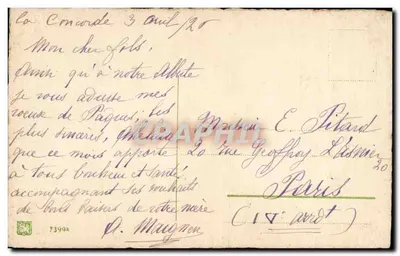 La Concorde 3 avril /20
Mon cher
qu'à notre
je vous adresse mes
voeux de Pâques, les
plus sincères,
que ce mois apporte
à tous bonheur et santé
accompagnant ses souhaits
de bons baisers de votre mère
A. Maignen
Madame E. Pitard
20 rue Geoffroy
20
Paris
(IVe arrdt)